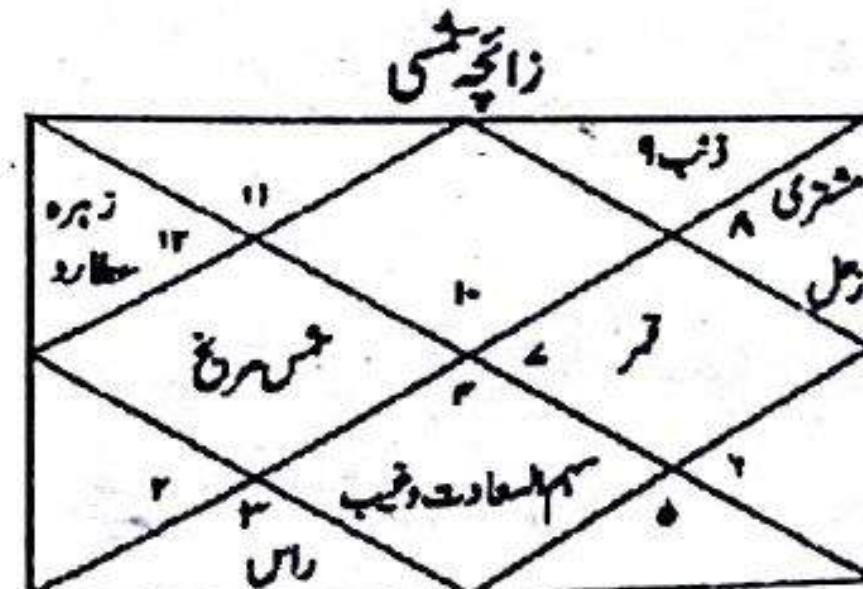 زائچہ شمسی
ذنب ۹
مشتری
۸
زحل
۱۱
زہرہ
عطارد
۱۲
۱۰
قمر
۷
شمس مریخ
۴
سہم السعادت و غیب
۲
۳
راس
۵
۶